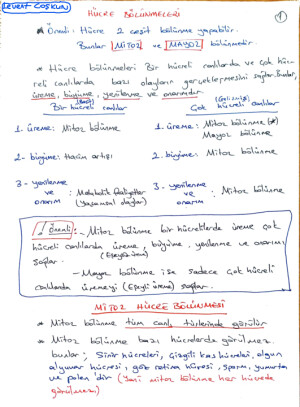 LEVENT COŞKUN
1
HÜCRE BÖLÜNMELERİ
* Önemli: Hücre 2 çeşit bölünme yapabilir.
Bunlar MİTOZ ve MAYOZ bölünmedir.
* Hücre bölünmeleri Bir hücreli canlılarda ve çok hüc-
reli canlılarda bazı olayların gerçekleşmesini sağlar. Bunlar,
üreme, büyüme, yenilenme ve onarımdır.
(Basit)
Bir hücreli canlılar
1. üreme: Mitoz bölünme
2- büyüme: hacim artışı
3- yenilenme
ve
onarım
: Metabolik faaliyetler
(Yaşamsal olaylar)
(Gelişmiş)
Çok hücreli canlılar
1. üreme: Mitoz bölünme (*)
Mayoz bölünme
2. büyüme: Mitoz bölünme
3- yenilenme
ve
onarım
: Mitoz bölünme
Önemli: - Mitoz bölünme bir hücrelilerde üreme çok
hücreli canlılarda üreme, büyüme, yenilenme ve onarımı
(Eşeysiz üreme)
sağlar.
- Mayoz bölünme ise sadece çok hücreli
canlılarda üremeyi (Eşeyli üreme) sağlar.
MİTOZ HÜCRE BÖLÜNMESİ
* Mitoz bölünme tüm canlı türlerinde görülür
* Mitoz bölünme bazı hücrelerde görülmez.
bunlar; Sinir hücreleri, Çizgili kas hücreleri, olgun
alyuvar hücresi, göz retina hücresi, sperm, yumurta
ve polen'dir (Yani mitoz bölünme her hücrede
görülmez)